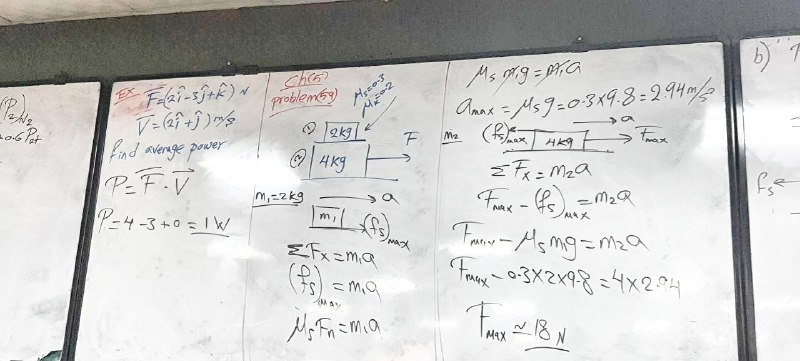 Ex. F⃗=(2î-3ĵ+k̂) N
V⃗=(2î+ĵ) m/s
find average power
P=F⃗·V⃗
P=4-3+0=1W
Ch(5)
problem(59)
μs=0.3
μk=0.2
① 2kg
② 4kg
F
m₁=2kg
a
m₁
(fs)max
ΣFx=m₁a
(fs)max=m₁a
μsFn=m₁a
μs m₁g=m₁a
amax=μsg=0.3×9.8=2.94m/s²
a
m₂ (fs)max 4kg Fmax
ΣFx=m₂a
Fmax-(fs)max=m₂a
Fmax-μsmg=m₂a
Fmax-0.3×2×9.8=4×2.94
Fmax≃18N
b)
fs